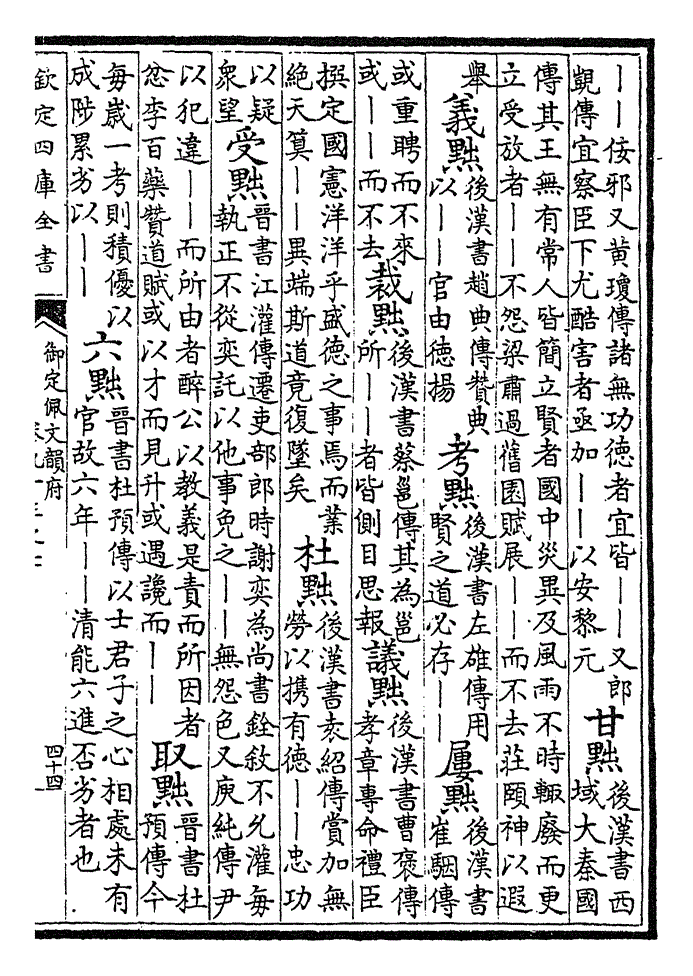 ——佞邪又黄瓊傳諸無功德者宜皆——又郎
覬傳宜察臣下尤酷害者亟加——以安黎元
甘黜
後漢書西
域大秦國
傳其王無有常人皆簡立賢者國中災異及風雨不時輙廢而更
立受放者——不怨梁肅過舊園賦展——而不去莊頤神以遐
舉
義黜
後漢書趙典傳贊典
以——官由德揚
考黜
後漢書左雄傳用
賢之道必存——
屢黜
後漢書
崔駰傳
或重聘而不來
或——而不去
裁黜
後漢書蔡邕傳其為邕
所——者皆側目思報
議黜
後漢書曹褒傳
孝章專命禮臣
撰定國憲洋洋乎盛德之事焉而業
絶天算——異端斯道竟復墜矣
杜黜
後漢書袁紹傳賞加無
勞以携有德——忠功
以疑
衆望
受黜
晉書江灌傳遷吏部郎時謝奕為尚書銓敘不允灌每
執正不從奕託以他事免之——無怨色又庾純傳尹
以犯違——而所由者醉公以教義是責而所因者
忿李百藥贊道賦或以才而見升或遇讒而——
取黜
晉書杜
預傳今
每歲一考則積優以
成陟累劣以——
六黜
晉書杜預傳以士君子之心相處未有
官故六年——清能六進否劣者也
欽定四庫全書
御定佩文韻府
四十四